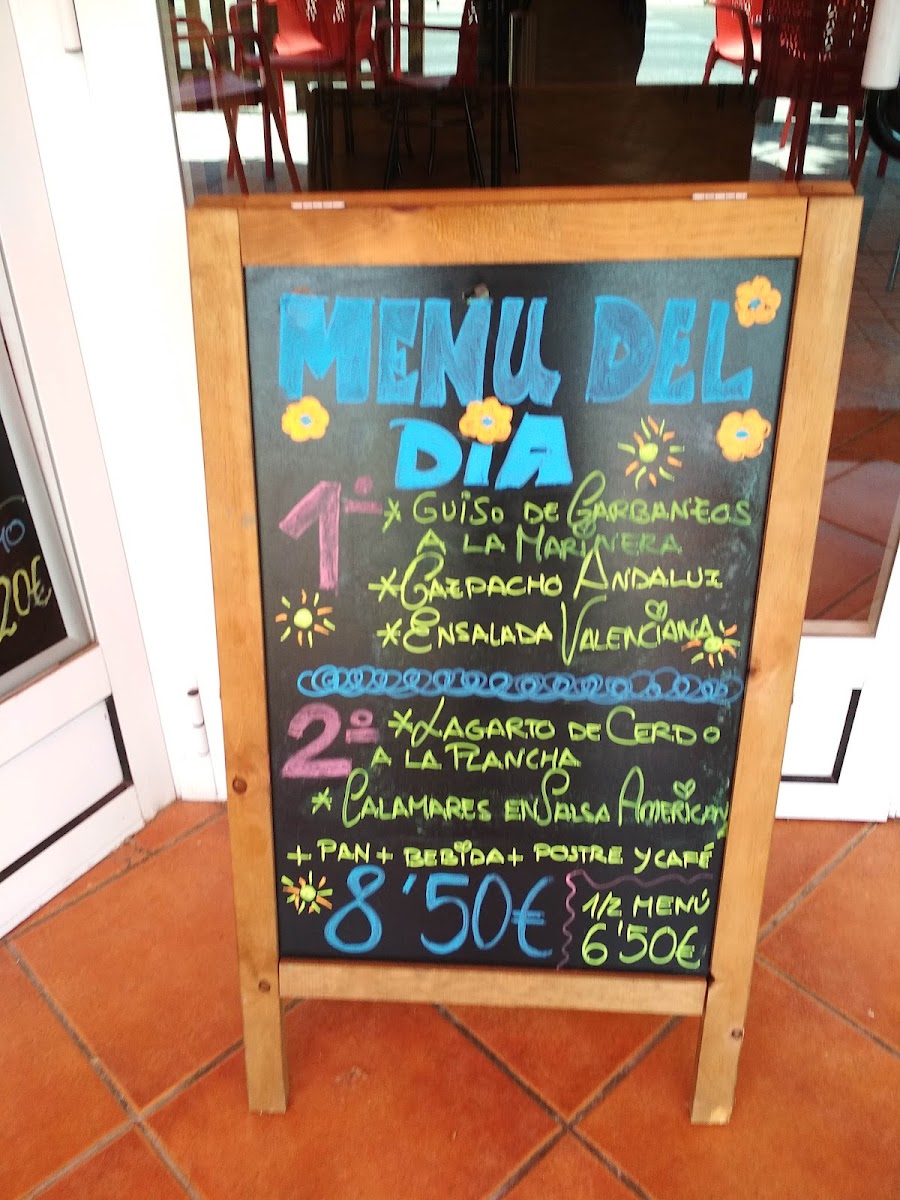 MENU DEL
DÍA
1º * GUISO DE GARBANZOS
A LA MARINERA
* GAZPACHO ANDALUZ
* ENSALADA VALENCIANA
2º * LAGARTO DE CERDO
A LA PLANCHA
* CALAMARES EN SALSA AMERICAN
+ PAN + BEBIDA + POSTRE Y CAFÉ
8'50€
1/2 MENÚ
6'50€
20€